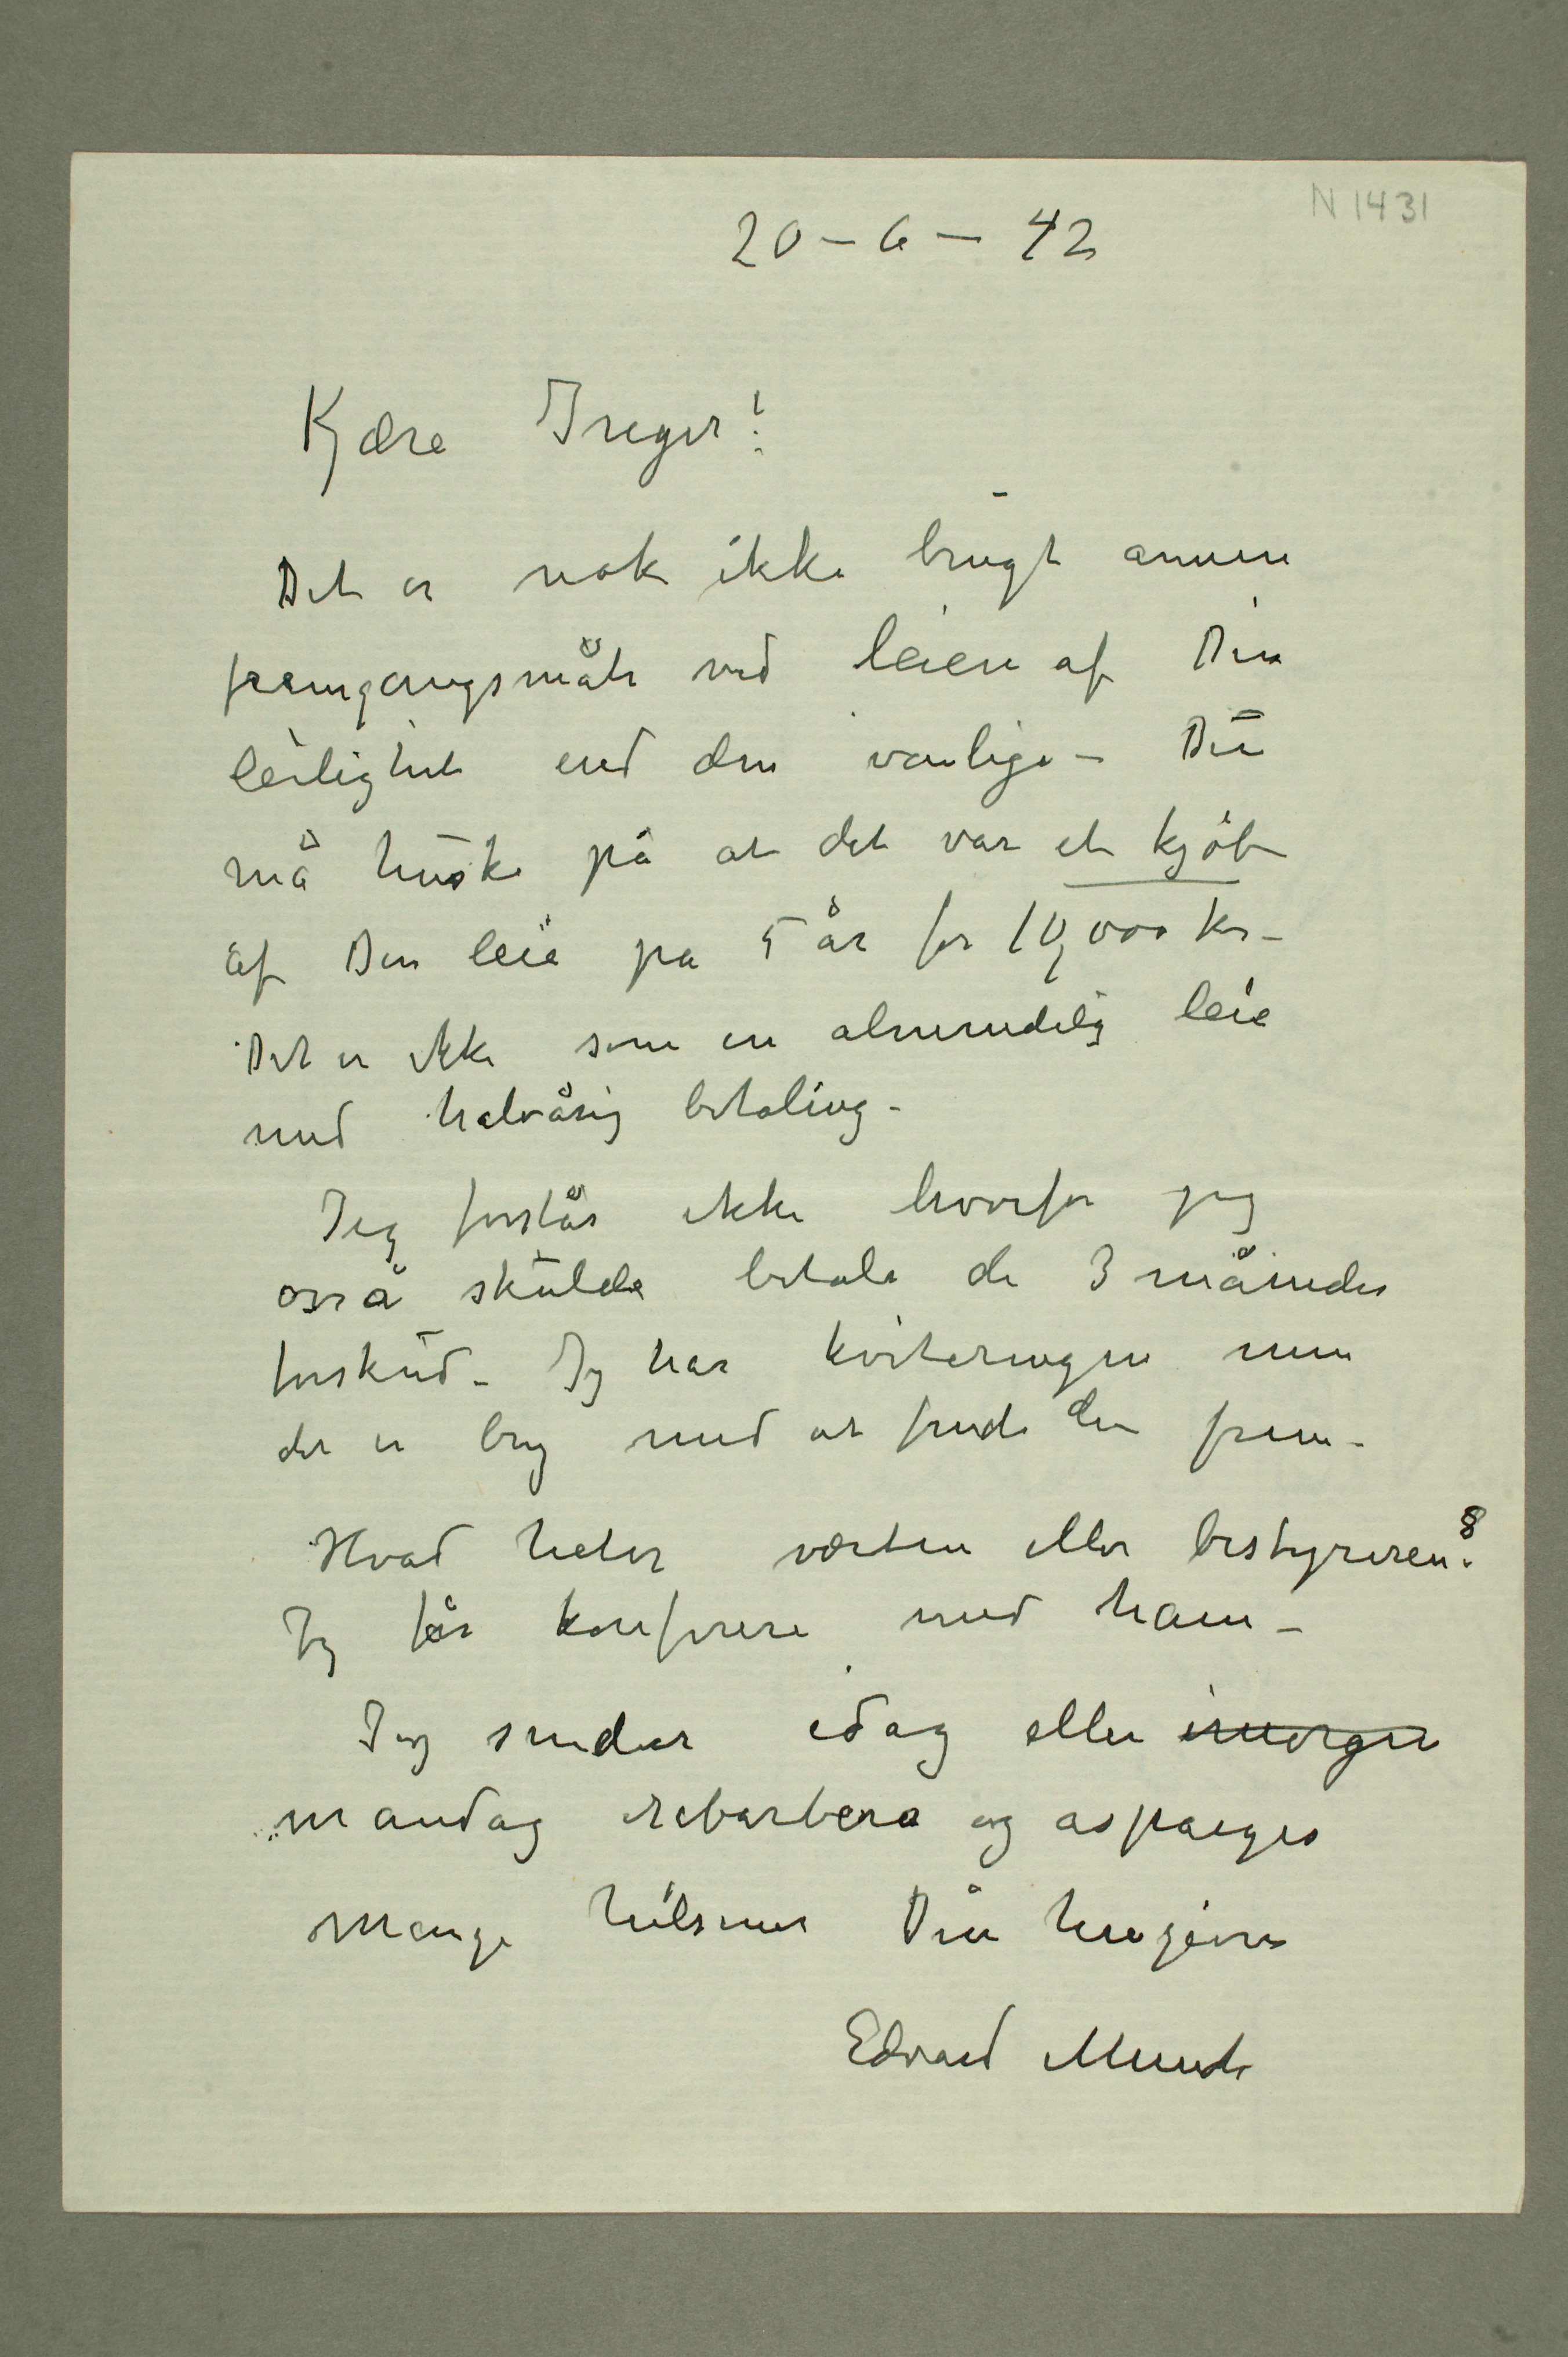 N 1431
20 – 6 – 42
Kjære Inger!
Det er nok ikke brugt annen
fremgangsmåte ved leien af Din
leilighet end den vanlige – Du
må huske på at det var et kjøb
af Din leie på 5 år for 10,000 kr –
Det er ikke som en almindelig leie
med halvårig betaling –
Jeg forstår ikke hvorfor jeg
også skulde betale de 3 måneders
forskud – Jeg har kviteringen men
det er bry med at finde den frem –
Hvad heter værten eller bestyreren?
Jeg får konferere med ham –
Jeg sender idag eller imorgen
mandag rebarbera og asparges
Mange hilsener Din hengivne
Edvard Munch